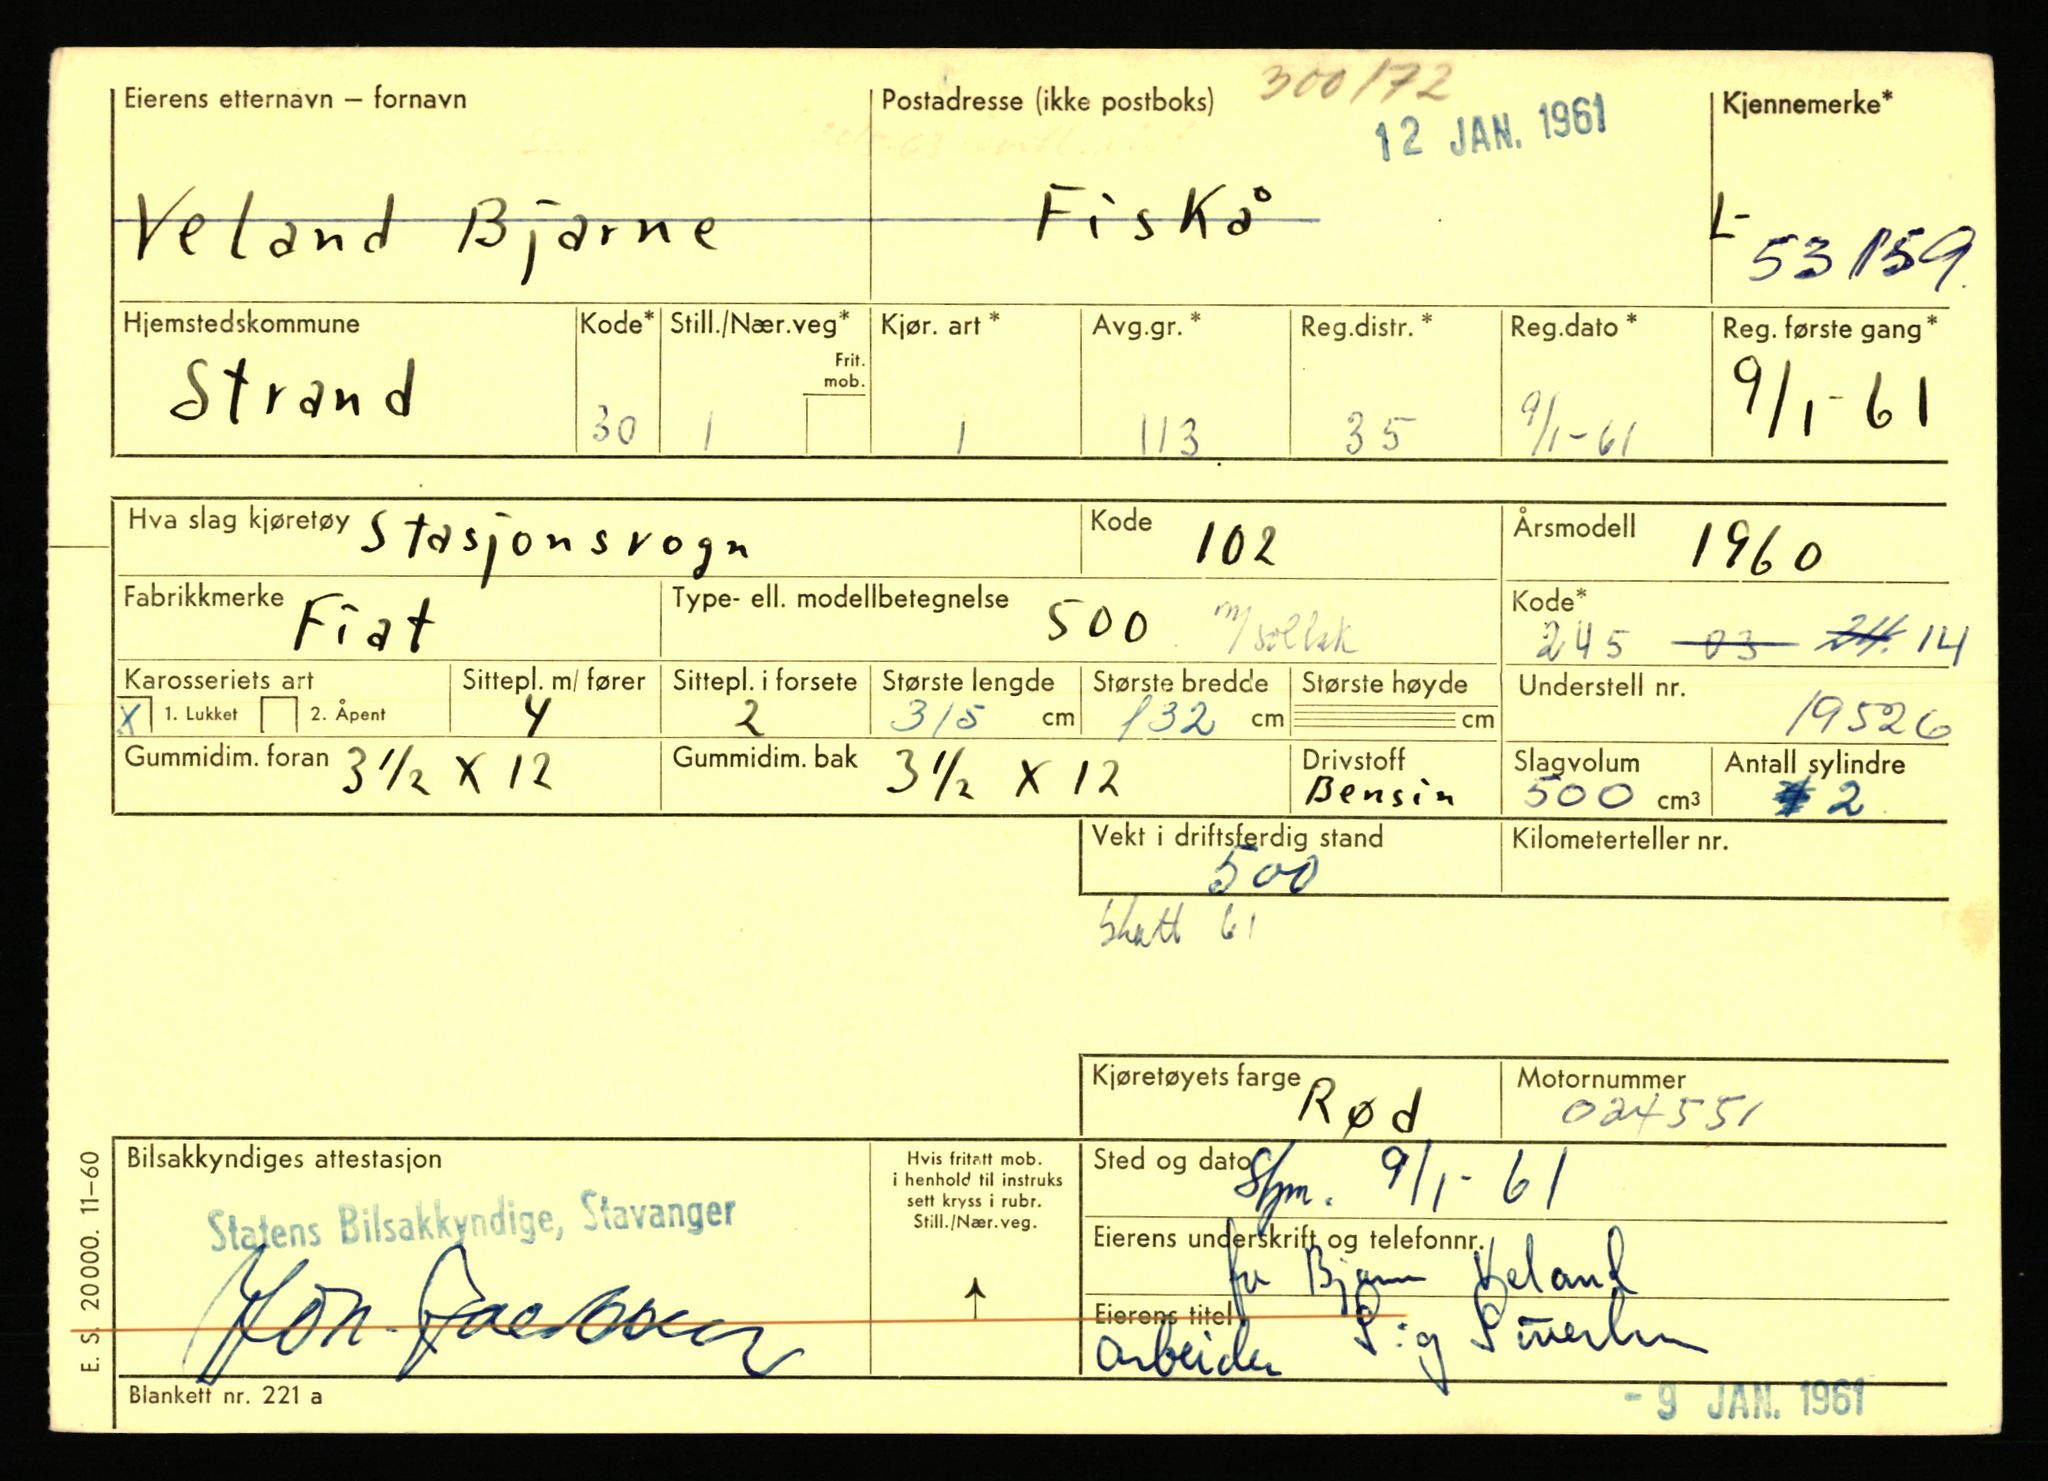 300/72
Eierens etternavn – fornavn Postadresse (ikke postboks) 12 JAN. 1961 Kjennemerke*
Veland Bjarne Fiskå L- 53159.
Hjemstedskommune Kode* Still./Nær.veg* Kjør. art * Avg.gr. * Reg.distr. * Reg.dato * Reg. første gang *
Frit.
mob.
Strand 30 1 1 113 35 9/1-61 9/1-61
Hva slag kjøretøy Stasjonsvogn Kode 102 Årsmodell 1960
Fabrikkmerke Fiat Type- ell. modellbetegnelse 500 m/ Kode* 245 03 24. 14
Karosseriets art Sittepl. m/ fører Sittepl. i forsete Største lengde Største bredde Største høyde Understell nr.
X 1. Lukket 2. Åpent 4 2 315 cm 132 cm cm 19526
Gummidim. foran 3 1/2 X 12 Gummidim. bak 3 1/2 X 12 Drivstoff Bensin Slagvolum 500 cm3 Antall sylindre 2
Vekt i driftsferdig stand 500 Kilometerteller nr.
Skatt 61
Kjøretøyets farge Rød Motornummer 024551
Bilsakkyndiges attestasjon Hvis fritatt mob. i henhold til instruks sett kryss i rubr. Still./Nær.veg. Sted og dato 9/1-61
Statens Bilsakkyndige, Stavanger
Eierens underskrift og telefonnr.
Bjarne Veland
Eierens titel
arbeider
Blankett nr. 221 a
- 9 JAN. 1961
E. S. 20 000. 11–60